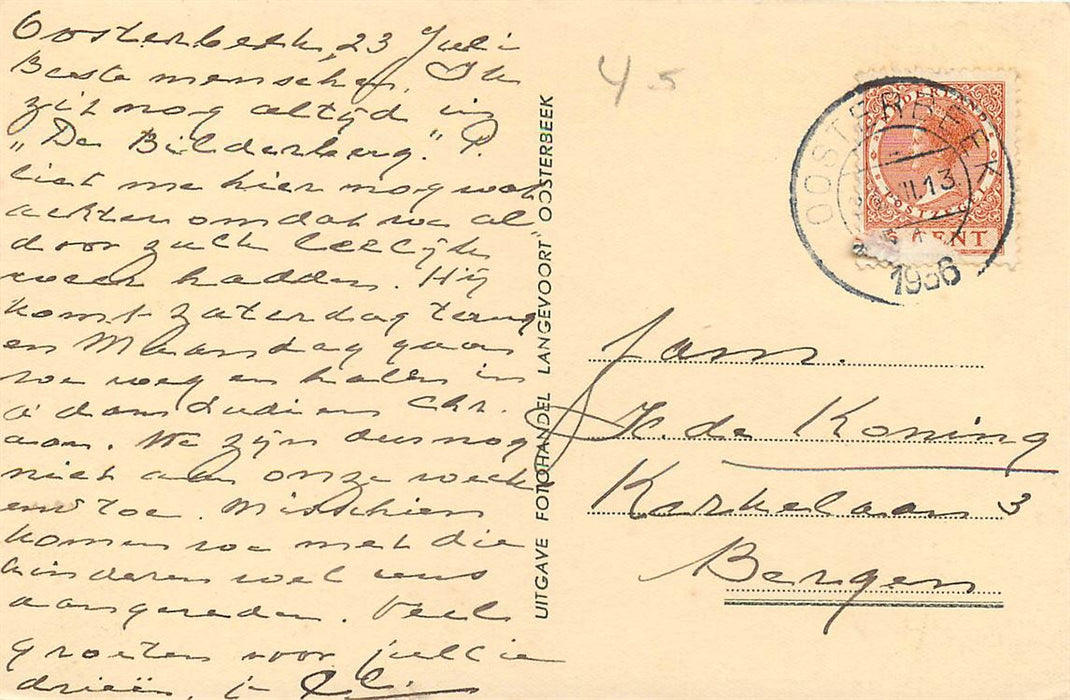 Oosterbeek, 23 Juli
Beste menschen. Ik
zit nog altijd in
„De Bilderberg." P.
liet me hier nog wat
achter omdat we al
door zulk leelijk
weer hadden. Hij
komt Zaterdag terug
en Maandag gaan
we weg en halen in
A'dam Ludi en Chr.
aan. We zijn dus nog
niet aan onze week
end toe. Misschien
komen we met die
kinderen wel eens
aangereden. Veel
groeten voor jullie
drieën.
UITGAVE FOTOHANDEL LANGEVOORT OOSTERBEEK
45
NEDERLAND
POSTZEGEL
5 CENT
OOSTERBEEK
VII.13
1936
Fam.
H. de Koning
Kerkelaan 3
Bergen